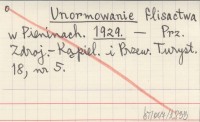 Unormowanie flisactwa
w Pieninach. 1929. — Prz.
Zdroj.-Kąpiel. i Przew. Turyst.
18, nr 5.